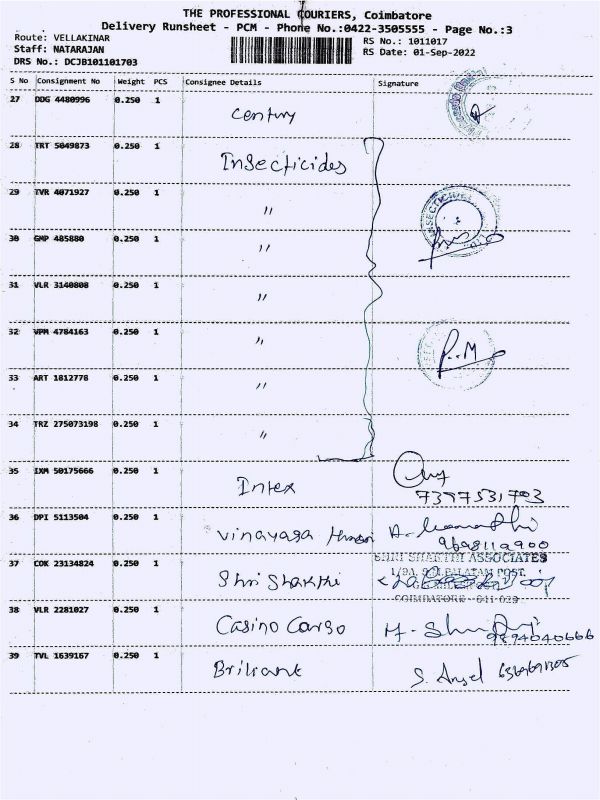 THE PROFESSIONAL COURIERS, Coimbatore
Delivery Runsheet - PCM - Phone No.:0422-3505555 - Page No.:3
Route: VELLAKINAR
RS No.: 1011017
Staff: NATARAJAN
RS Date: 01-Sep-2022
DRS No.: DCJB101101703
S No Consignment No Weight PCS Consignee Details Signature
27 DDG 4480996 0.250 1 Century
28 TRT 5049873 0.250 1 Insecticides
29 TVR 4071927 0.250 1 "
30 GMP 485880 0.250 1 "
31 VLR 3140808 0.250 1 "
32 VPM 4784163 0.250 1 "
33 ART 1812778 0.250 1 "
34 TRZ 275073198 0.250 1 "
35 IXM 50175666 0.250 1 Intex
7397531703
36 DPI 5113504 0.250 1 Vinayaga
37 COK 23134824 0.250 1 Shri Shakthi
SHRI SHAKTHI ASSOCIATES
COIMBATORE - 641 029
38 VLR 2281027 0.250 1 Casino Cargo
9894040666
39 TVL 1639167 0.250 1 Briliant S. Angel